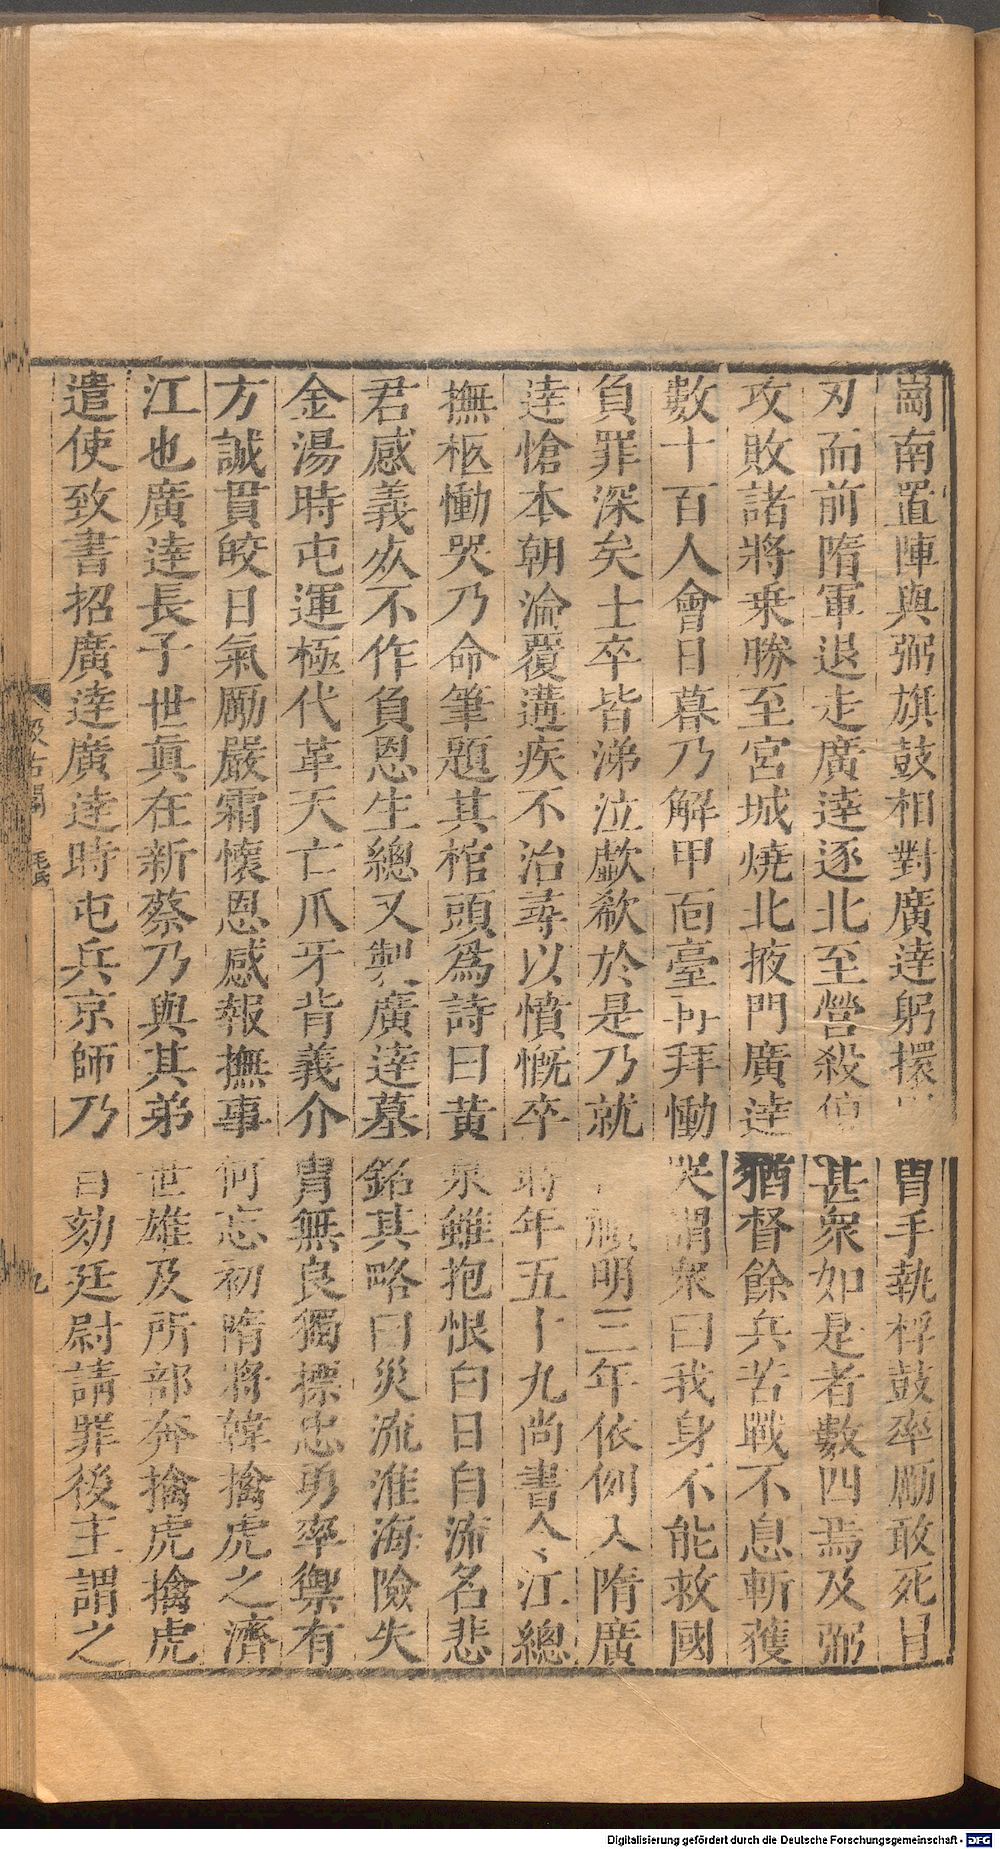 崗南置陣與弼旗鼓相對廣逹躬擐冑手執桴鼓率勵敢死冒
刃而前隋軍退走廣逹逐北至營殺傷甚衆如是者數四焉及弼
攻敗諸將乗勝至宮城燒北掖門廣逹猶督餘兵苦戰不息斬獲
數十百人會日暮乃解甲靣臺再拜慟哭謂衆曰我身不能救國
負罪深矣士卒皆涕泣歔欷於是乃就禎明三年依例入隋廣
逹愴本朝淪覆遘疾不治尋以憤慨卒時年五十九尚書令江總
撫柩慟哭乃命筆題其棺頭爲詩曰黄泉雖抱恨白日自流名悲
君感義死不作負恩生總又製廣逹墓銘其略曰災流淮海險失
金湯時屯運極代革天亡爪牙背義介冑無良獨摽忠勇率禦有
方誠貫皎日氣勵嚴霜懷恩感報撫事何忘初隋將韓擒虎之濟
江也廣逹長子世眞在新蔡乃與其弟世雄及所部奔擒虎擒虎
遣使致書招廣逹廣逹時屯兵京師乃自劾廷尉請罪後主謂之
汲古閣
毛氏
九
Digitalisierung gefördert durch die Deutsche Forschungsgemeinschaft - DFG